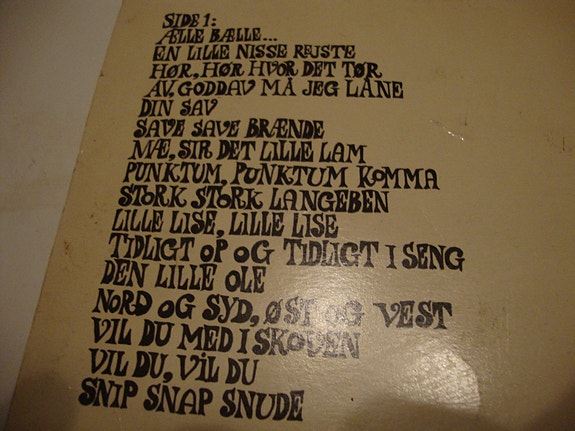 SIDE 1:
ÆLLE BÆLLE...
EN LILLE NISSE REJSTE
HØR, HØR HVOR DET TØR
AV, GODDAV MÅ JEG LÅNE
DIN SAV
SAVE SAVE BRÆNDE
MÆ, SIR DET LILLE LAM
PUNKTUM, PUNKTUM KOMMA
STORK STORK LANGEBEN
LILLE LISE, LILLE LISE
TIDLIGT OP OG TIDLIGT I SENG
DEN LILLE OLE
NORD OG SYD, ØST OG VEST
VIL DU MED I SKOVEN
VIL DU, VIL DU
SNIP SNAP SNUDE